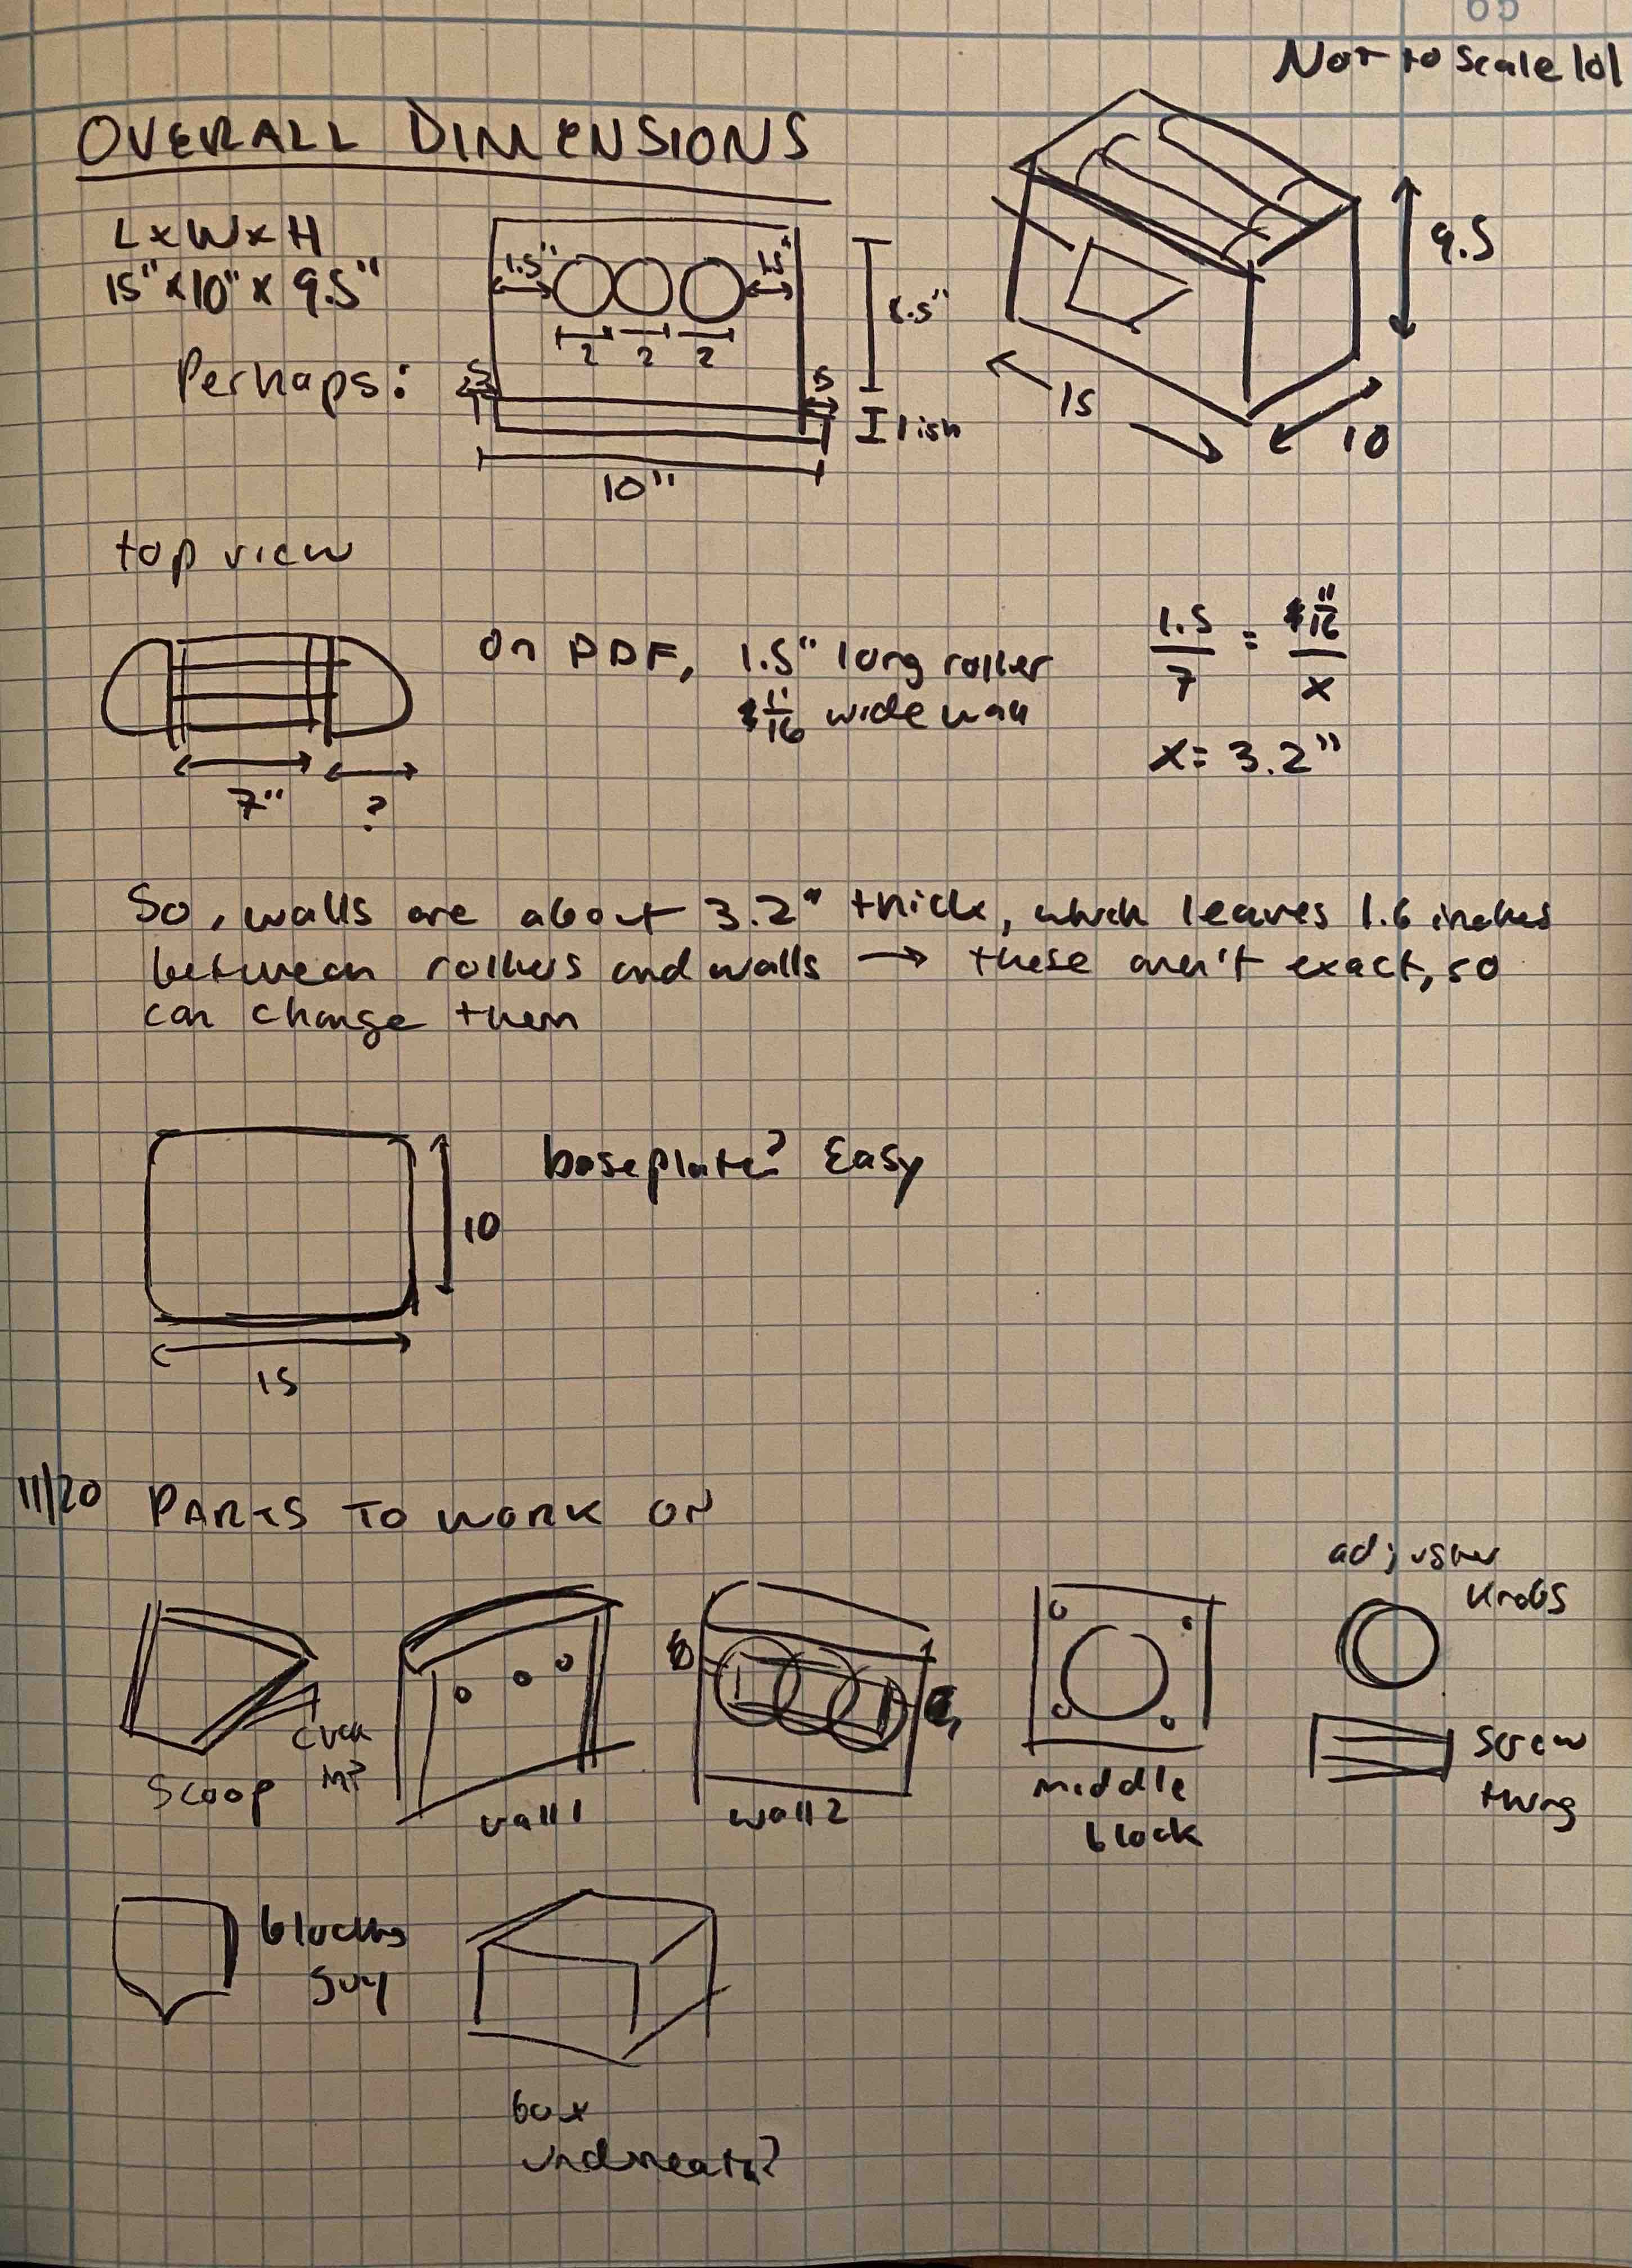 65
Not to scale lol
OVERALL DIMENSIONS
L x W x H
15" x 10" x 9.5"
Perhaps:
1.5"
1.5"
2 2 2
8.5"
.5
.5
1 ish
10"
9.5
15
10
top view
7"
?
On PDF, 1.5" long roller
11/16 wide wall
1.5 / 7 = 11/16 / x
x = 3.2"
So, walls are about 3.2" thick, which leaves 1.6 inches
between rollers and walls → these aren't exact, so
can change them
baseplate? Easy
10
15
11/20 PARTS TO WORK ON
scoop
wall 1
wall 2
middle
block
adjuster
knobs
screw
thing
guy
box
underneath?